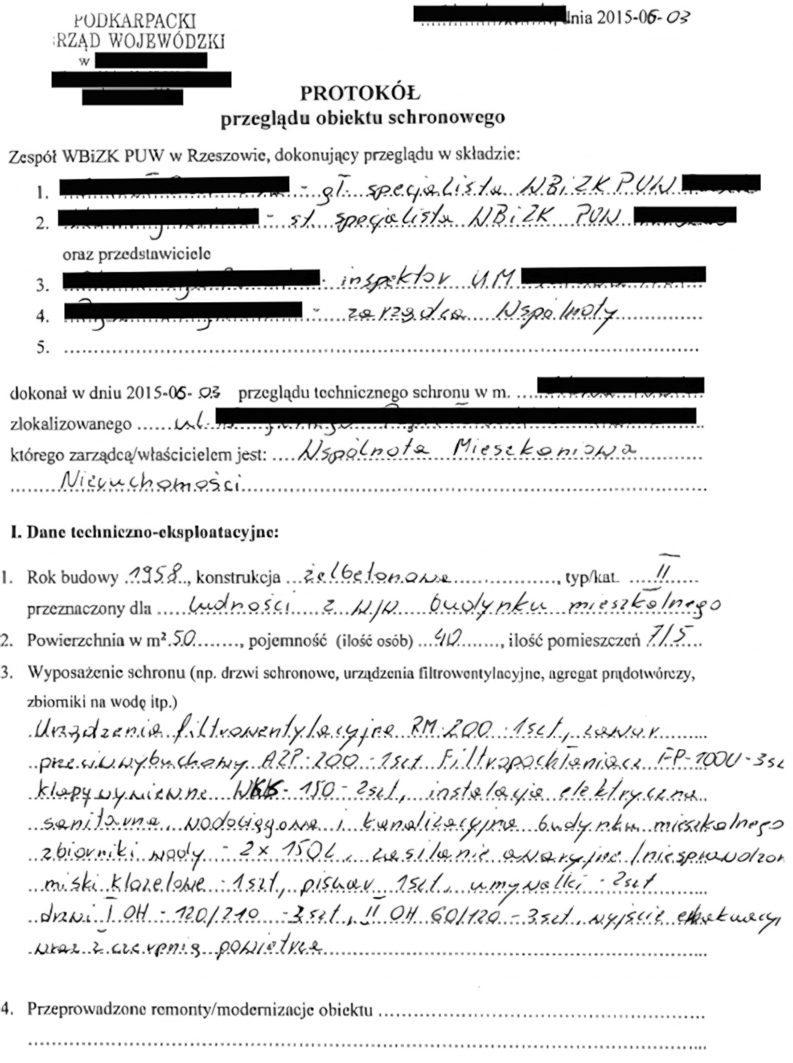 PODKARPACKI
RZĄD WOJEWÓDZKI
w
dnia 2015-06-03
PROTOKÓŁ
przeglądu obiektu schronowego
Zespół WBiZK PUW w Rzeszowie, dokonujący przeglądu w składzie:
1. - gł. specjalista WBiZK PUW
2. - st. specjalista WBiZK PUW
oraz przedstawiciele
3. - inspektor UM
4. - zarządca Wspólnoty
5.
dokonał w dniu 2015-06-03 przeglądu technicznego schronu w m.
zlokalizowanego ul.
którego zarządcą/właścicielem jest: Wspólnota Mieszkaniowa
Nieruchomości
I. Dane techniczno-eksploatacyjne:
1. Rok budowy 1958, konstrukcja żelbetonowa, typ/kat. II
przeznaczony dla ludności z w/w budynku mieszkalnego
2. Powierzchnia w m² 50, pojemność (ilość osób) 40, ilość pomieszczeń 7/5
3. Wyposażenie schronu (np. drzwi schronowe, urządzenia filtrowentylacyjne, agregat prądotwórczy,
zbiorniki na wodę itp.)
Urządzenia filtrowentylacyjne RM-200 - 1szt, zawór
przeciwwybuchowy AZP-200 - 1szt Filtropochłaniacz FP-100U - 3sz
klapy wymienne - 150 - 2szt, instalacja elektryczna
sanitarna, wodociągowa i kanalizacyjna budynku mieszkalnego
zbiorniki wody - 2x 150L, zasilanie awaryjne /niesprawdzon
miski klozetowe - 1szt, pisuar 1szt, umywalki - 2szt
drzwi I OH - 120/210 - 2szt, II OH 60/120 - 3szt, wyjście ewakuacyj
wraz z czerpnią powietrza
4. Przeprowadzone remonty/modernizacje obiektu